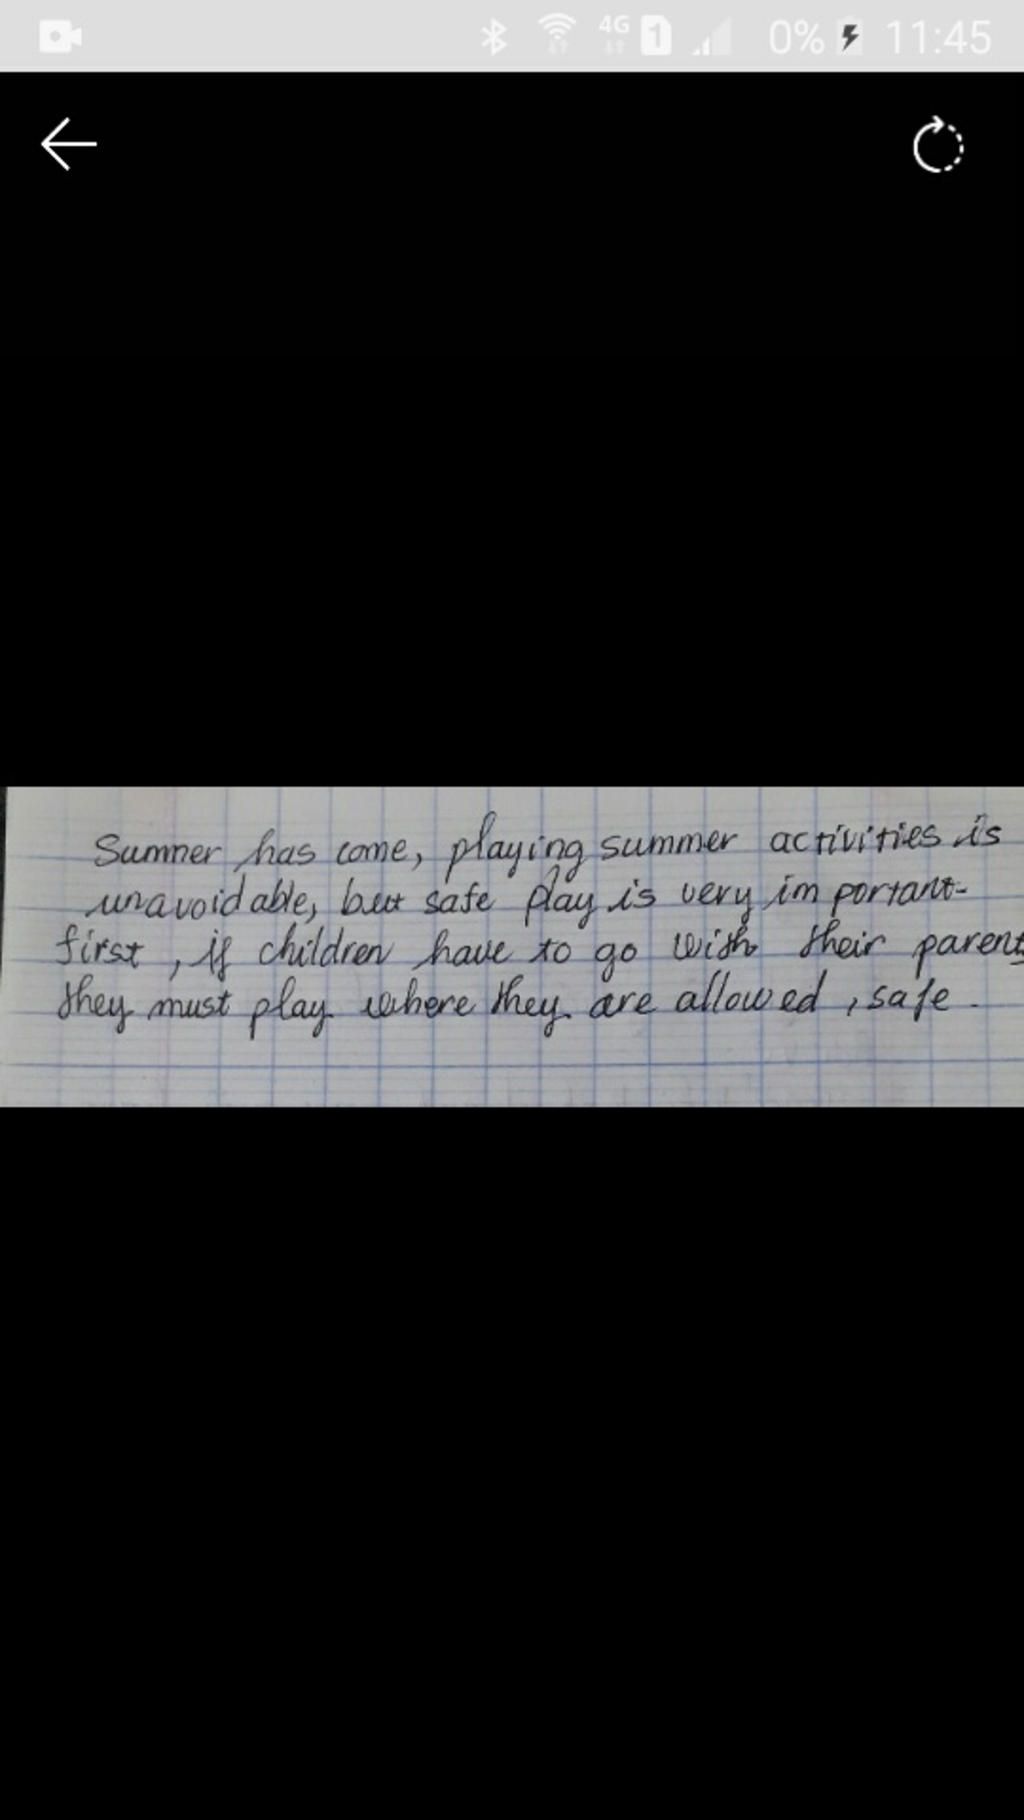 4G 1 0% 11:45
Summer has come, playing summer activities is
unavoidable, but safe play is very important
first, if children have to go with their parents
they must play where they are allowed, safe.